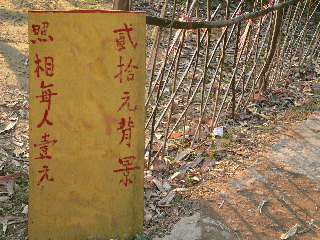 貳拾元背景
照相每人壹元